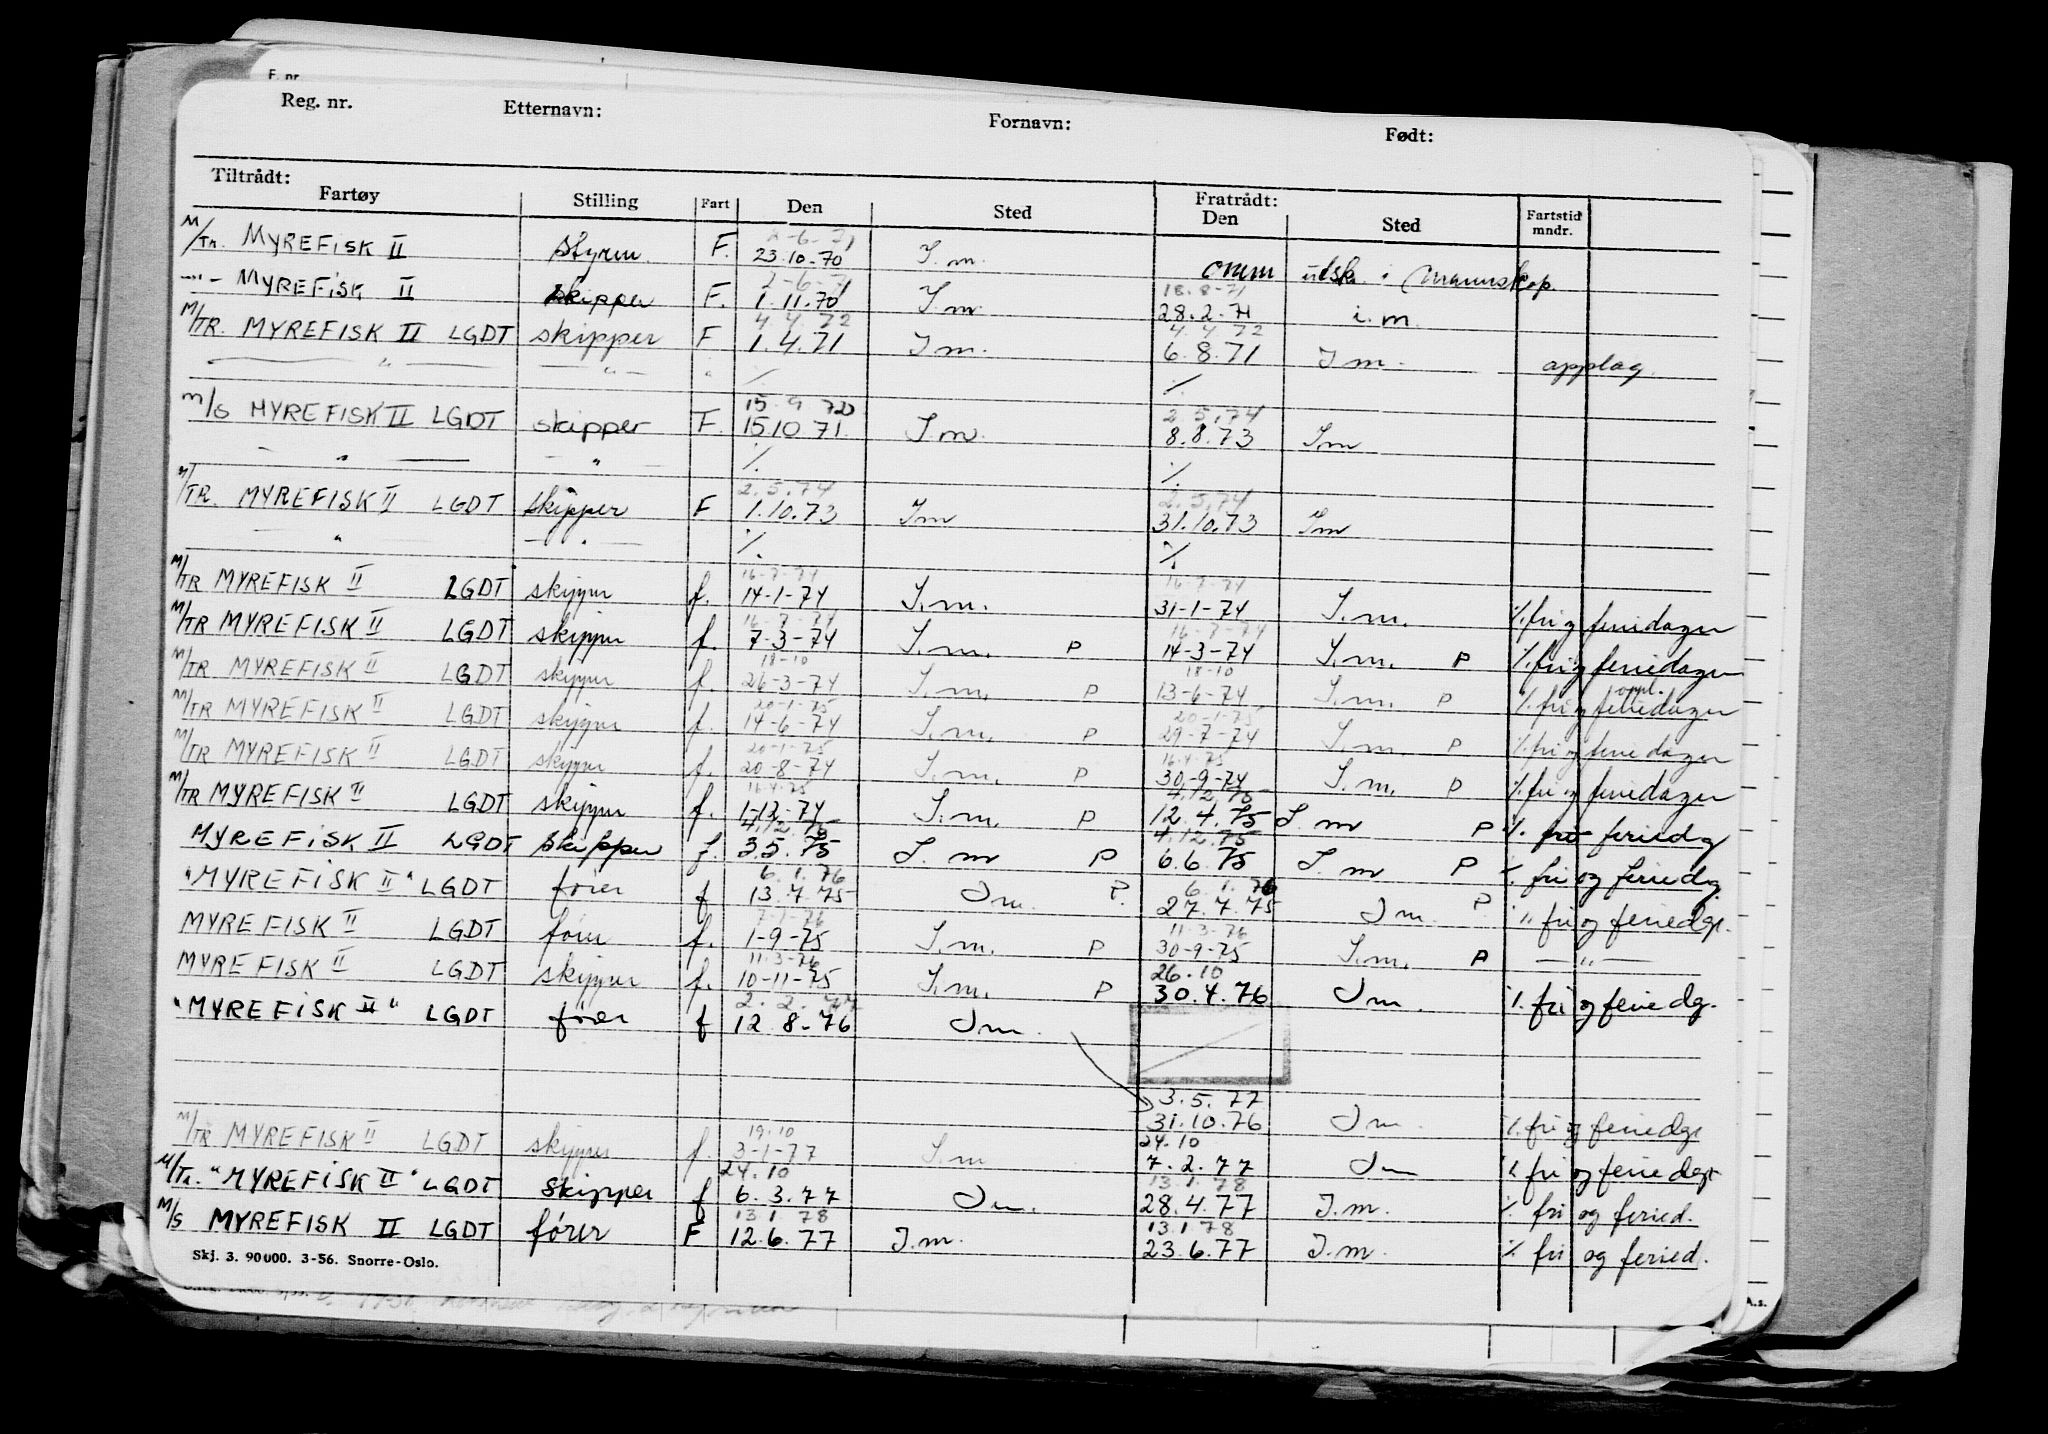 F. nr
Reg. nr. Etternavn: Fornavn: Født:
Tiltrådt: Fratrådt:
Fartøy Stilling Fart Den Sted Den Sted Fartstid mndr.
2-6-71
M/Tr. MYREFISK II styrm. F. 23.10.70 I.m. omm utsk. i mannskap.
2-6-71 18.8-71
-"- MYREFISK II skipper F. 1.11.70 I m. 28.2.71 i.m.
4.4.72 4.4.72
M/TR. MYREFISK II LGDT skipper F 1.4.71 I m. 6.8.71 I m. opplag.
" -"- " % %
15.9 72 2.5.74
M/S MYREFISK II LGDT skipper F. 15.10.71. I.m. 8.8.73 I m
- " - - " - % %
2.5.74 2.5.74
M/TR. MYREFISK II LGDT skipper F 1.10.73 I m 31.10.73 I m
" - " - % %
16-7-74 16-7-74
M/TR MYREFISK II LGDT skipper f. 14-1-74 I.m. 31-1-74 I.m. %. fri og feriedager
16-7-74 16-7-74
M/TR MYREFISK II LGDT skipper f. 7-3-74 I.m. P 14-3-74 I.m. P %. fri og feriedager
18-10 18-10 oppl.
M/TR MYREFISK II LGDT skipper f. 26-3-74 I.m. P 13-6-74 I.m. P %. fri og feriedager
20-1-75 20-1-75
M/TR MYREFISK II LGDT skipper f. 14-6-74 I.m. P 29-7-74 I.m. P %. fri og feriedager
20-1-75 16.4.75
M/TR MYREFISK II LGDT skipper f. 20-8-74 I.m. P 30-9-74 I.m. P %. fri og feriedager
16.4.75 4.12.75
M/TR MYREFISK II LGDT skipper f. 1-12-74 I.m. P 12.4.75 I. m P %. fri feriedg
4.12.75 4.12.75
MYREFISK II LGDT skipper f. 3.5.75 I. m P 6.6.75 I. m P %. fri og feriedg
6.1.76 6.1.76
"MYREFISK II" LGDT fører f 13.7.75 I m. P. 27.7.75 I m. P % fri og feriedgr.
7-1-76 11.3-76
MYREFISK II LGDT fører f. 1-9-75 I.m. P 30-9-75 I.m. P -"-
11.3-76 26.10
MYREFISK II LGDT skipper f. 10-11-75 I.m. P 30.4.76 I m. %. fri og feriedg.
2.2.77
"MYREFISK II" LGDT fører f 12.8.76 I m.
3.5.77
31.10.76 I m. %. fri og feriedgr
19.10 24.10
M/TR MYREFISK II LGDT skipper f. 3-1-77 I.m 7.2.77 I m % fri og feriedgr
24.10 13.1.78
M/Tr. "MYREFISK II" LGDT skipper f 6.3.77 I m. 28.4.77 I.m. %. fri og feried.
13.1 78 13.1 78
M/S MYREFISK II LGDT fører F 12.6.77 I.m. 23.6.77 I.m. %. fri og feried.
Skj. 3. 90000. 3-56. Snorre-Oslo.
A.s.